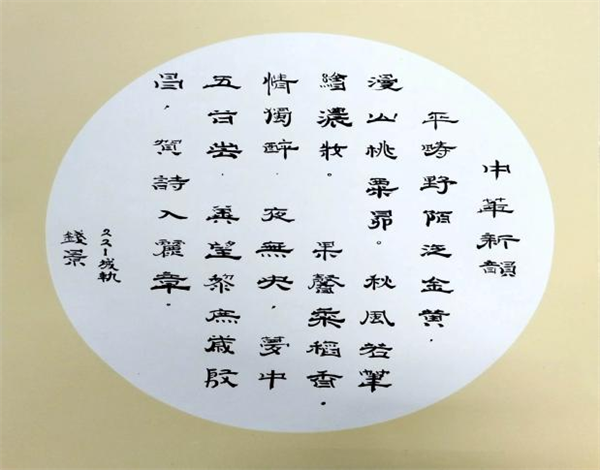 中華新韻
平疇野陌泛金黄.
漫山桃栗昴。秋風若筆
繪濃妝。果馨稻香.
情獨醉.夜無央,夢中
五出.望黎庶歲殷
昌,賀詩入麗章。
221城軌
錢景